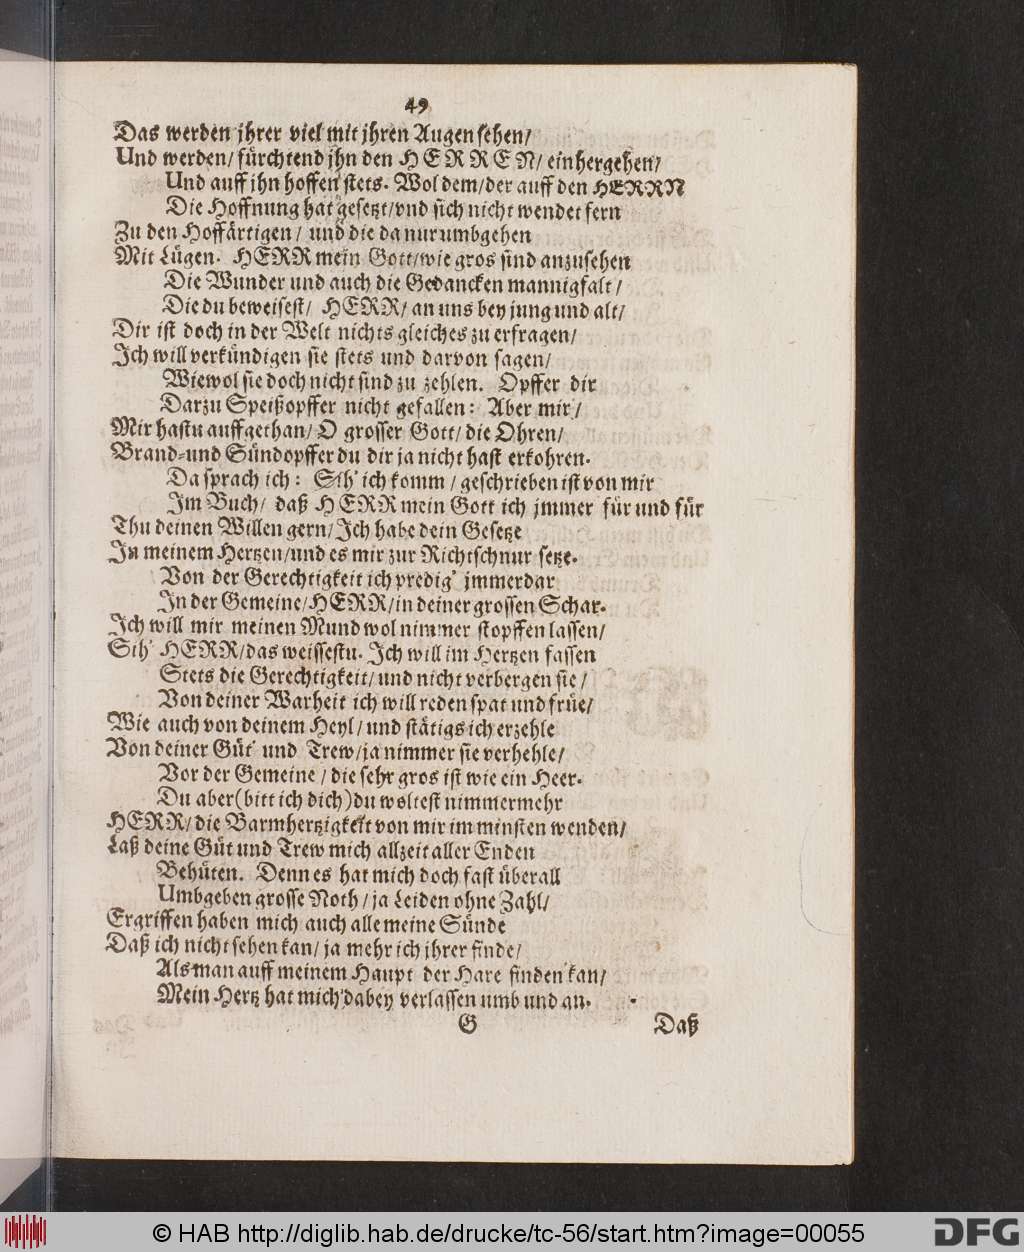 49
Das werden jhrer viel mit jhren Augen sehen/
Und werden/ fürchtend jhn den HERREN/ einhergehen/
Und auff jhn hoffen stets. Wol dem/der auff den HERRN
Die Hoffnung hat gesetzt/vnd sich nicht wendet fern
Zu den Hoffärtigen/ und die da nur umbgehen
Mit Lügen. HERR mein Gott/wie gros sind anzusehen
Die Wunder und auch die Gedancken mannigfalt/
Die du beweisest/ HERR/ an uns bey jung und alt/
Dir ist doch in der Welt nichts gleiches zu erfragen/
Ich will verkündigen sie stets und darvon sagen/
Wiewol sie doch nicht sind zu zehlen. Opffer dir
Darzu Speißopffer nicht gefallen: Aber mir/
Mir hastu auffgethan/ O grosser Gott/ die Ohren/
Brand-und Sündopffer du dir ja nicht hast erkohren.
Da sprach ich: Sih' ich komm/ geschrieben ist von mir
Im Buch/ daß HERR mein Gott ich jmmer für und für
Thu deinen Willen gern/Ich habe dein Gesetze
In meinem Hertzen/und es mir zur Richtschnur setze.
Von der Gerechtigkeit ich predig' jmmerdar
In der Gemeine/HERR/in deiner grossen Schar.
Ich will mir meinen Mund wol nimmer stopffen lassen/
Sih' HERR/das weissestu. Ich will im Hertzen fassen
Stets die Gerechtigkeit/und nicht verbergen sie/
Von deiner Warheit ich will reden spat und früe/
Wie auch von deinem Heyl/und stätigs ich erzehle
Von deiner Güt' und Trew/ja nimmer sie verhehle/
Vor der Gemeine/die sehr gros ist wie ein Heer.
Du aber(bitt ich dich)du woltest nimmermehr
HERR/die Barmhertzigkeit von mir im minsten wenden/
Laß deine Güt und Trew mich allzeit aller Enden
Behüten. Denn es hat mich doch fast überall
Umbgeben grosse Noth/ja Leiden ohne Zahl/
Ergriffen haben mich auch alle meine Sünde
Daß ich nicht sehen kan/ ja mehr ich jhrer finde/
Als man auff meinem Haupt der Hare finden kan/
Mein Hertz hat mich dabey verlassen umb und an.
G Daß
© HAB http://diglib.hab.de/drucke/tc-56/start.htm?image=00055
DFG